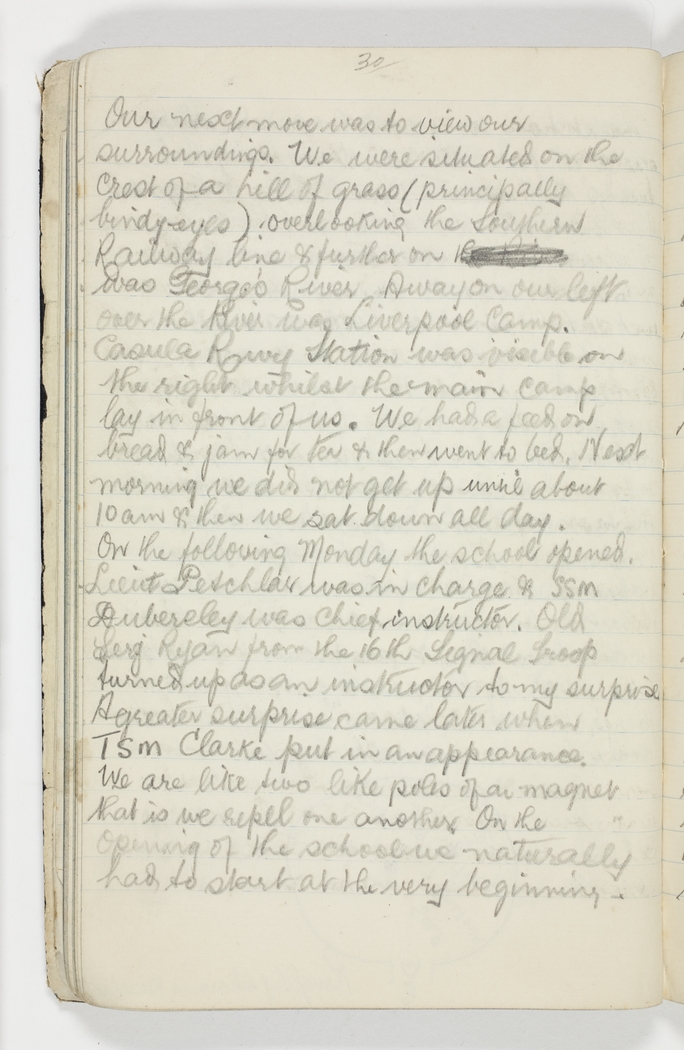 30
Our next move was to view our
surroundings. We were situated on the
crest of a hill of grass (principally
bindy-eyes) overlooking the Southern
Railway line & further on
was George's River. Away on our left
over the River was Liverpool Camp.
Casula Rlwy Station was visible on
the right whilst the main camp
lay in front of us. We had a feed on
bread & jam for tea & then went to bed. Next
morning we did not get up until about
10 am & then we sat down all day.
On the following Monday the school opened.
Lieut Peschlar was in charge & SSM
Dubereley was chief instructor. Old
Serj Ryan from the 16th Signal Troop
turned up as an instructor to my surprise
A greater surprise came later when
TSM Clarke put in an appearance.
We are like two like poles of a magnet
that is we repel one another. On the
opening of the school we naturally
had to start at the very beginning.